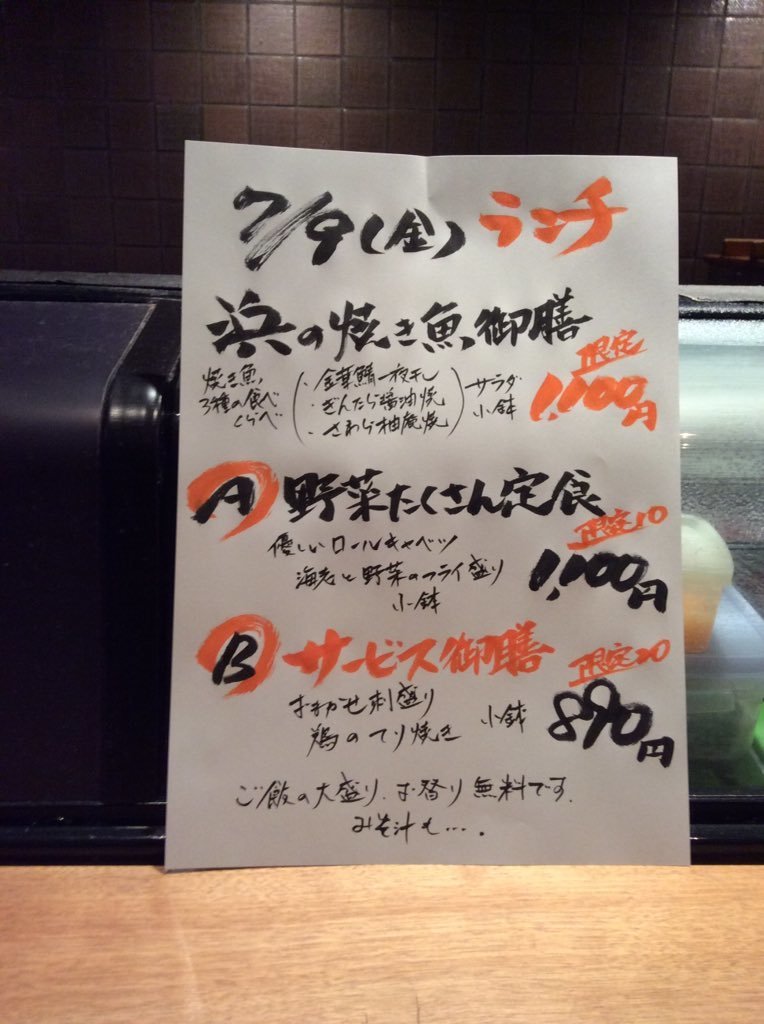 7/9(金)ランチ
浜の焼き魚御膳
限定
1,100円
焼き魚
3種の食べ
くらべ
・金華鯖一夜干し
・ぎんだら醤油焼
・さわら柚庵焼
サラダ
小鉢
A 野菜たくさん定食
限定10
1,100円
優しいロールキャベツ
海老と野菜のフライ盛り
小鉢
B サービス御膳
限定20
890円
おまかせ刺盛り
鶏のてり焼き
小鉢
ご飯の大盛り、お替り無料です。
みそ汁も・・・。